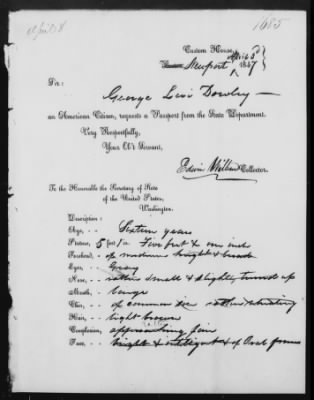 April 8
1685
Custom House,
Newport April 6th 1847
Sir:
George Levi Dowley
an American Citizen, requests a Passport from the State Department.
Very Respectfully,
Your Ob't Servant,
Edwin Wilbur Collector.
To the Honorable the Secretary of State
of the United States,
Washington.
Description:
Age, Sixteen years
Stature, 5 feet 1 in Five feet & one inch
Forehead, of medium height & breadth
Eyes, Gray
Nose, rather small & slightly turned up
Mouth, large
Chin, of common size rather retreating
Hair, light brown
Complexion, approaching fair
Face, bright & intelligent & of Oval form